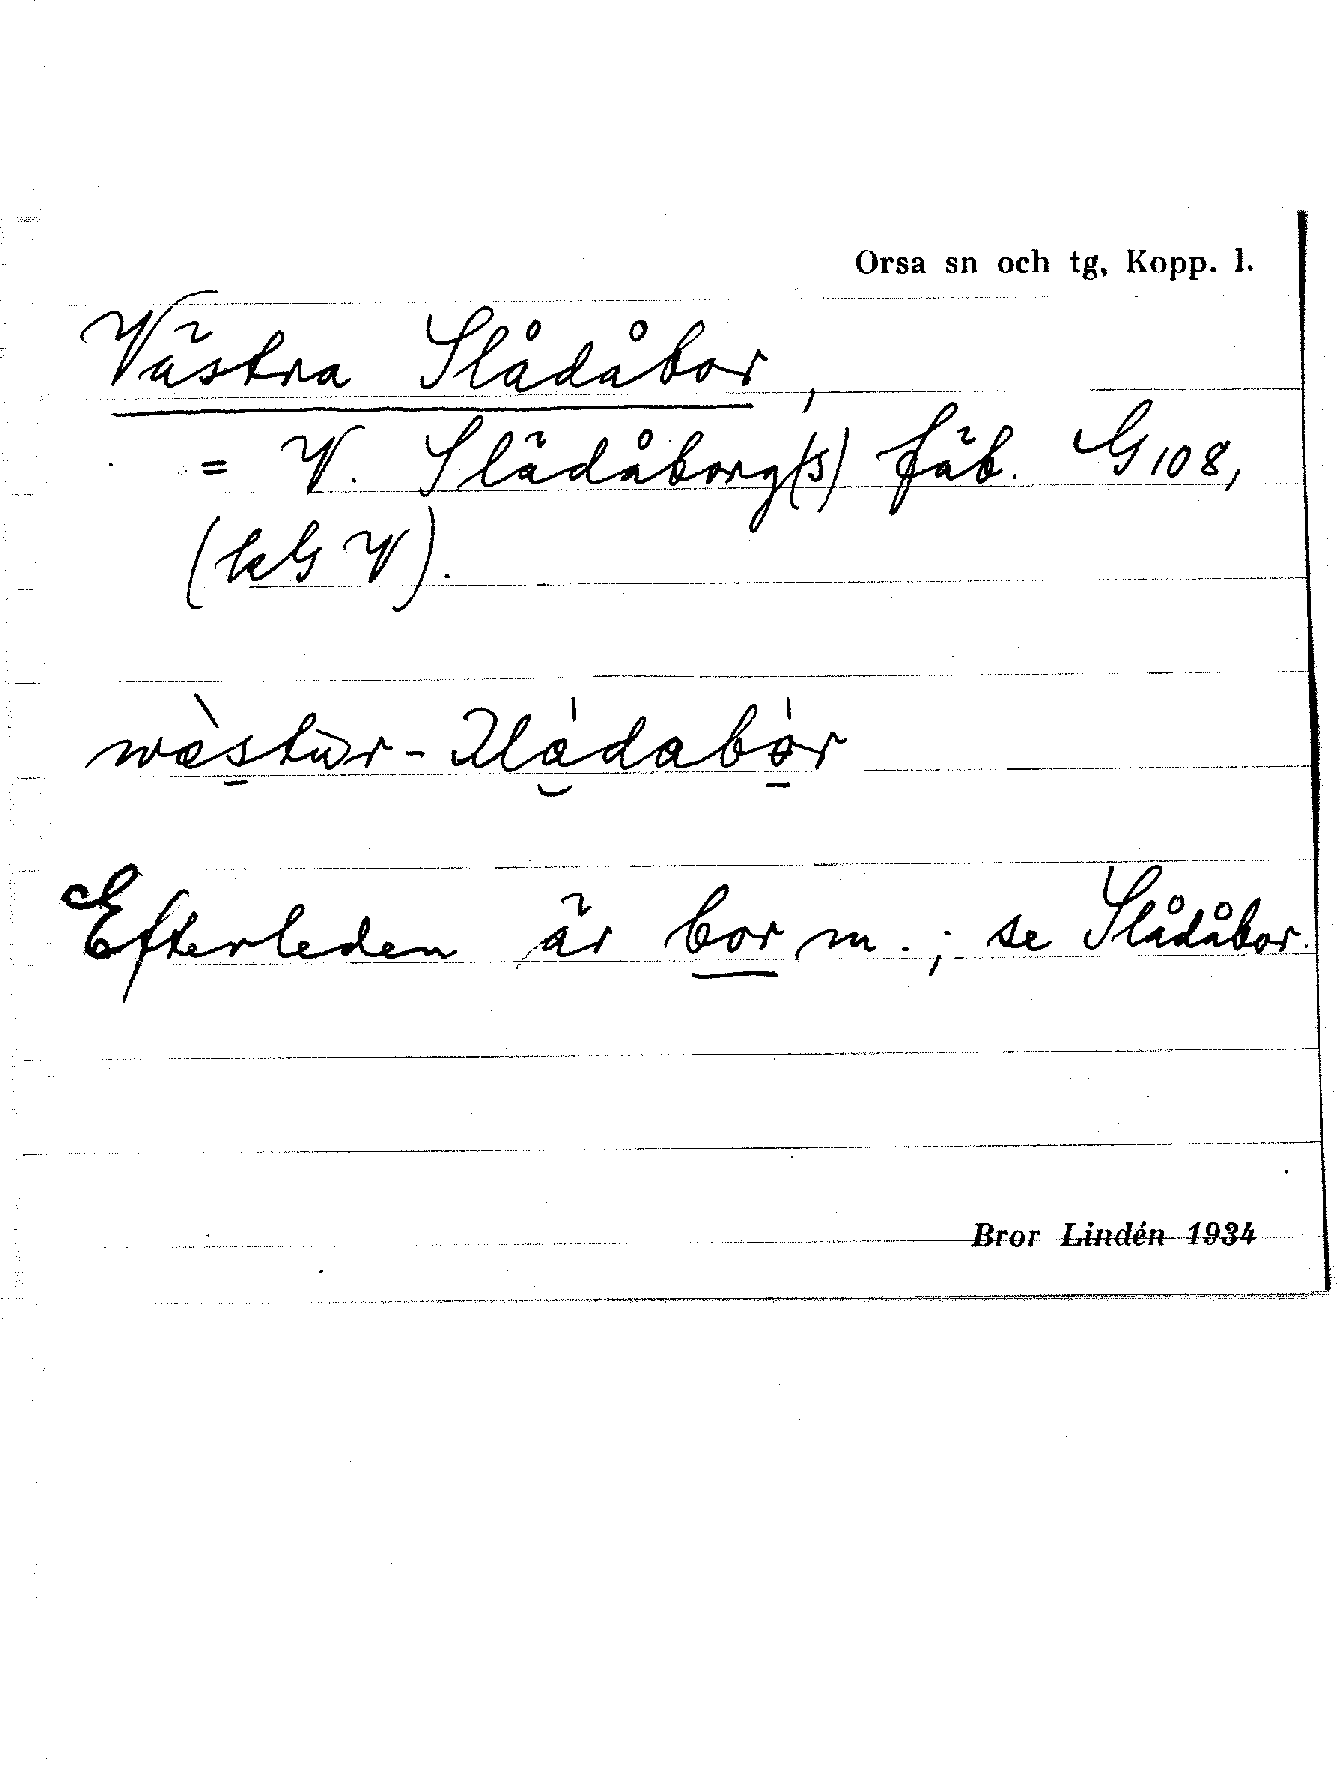 Orsa sn och tg, Kopp. l.
Västra Slådåbor,
= V. Slädåborg(s) fäb. G108,
(kG V).
Efterleden är bor m.; se Slådåbor.
Bror Lindén 1934